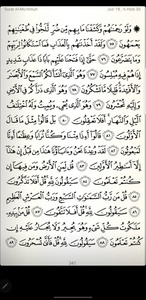 Surah Al-Mu'minun
۞ وَلَوْ رَحِمْنَٰهُمْ وَكَشَفْنَا مَا بِهِم مِّن ضُرٍّ لَّلَجُّوا۟ فِى طُغْيَٰنِهِمْ
يَعْمَهُونَ ٧٥ وَلَقَدْ أَخَذْنَٰهُم بِٱلْعَذَابِ فَمَا ٱسْتَكَانُوا۟ لِرَبِّهِمْ
وَمَا يَتَضَرَّعُونَ ٧٦ حَتَّىٰٓ إِذَا فَتَحْنَا عَلَيْهِم بَابًا ذَا عَذَابٍ شَدِيدٍ
إِذَا هُمْ فِيهِ مُبْلِسُونَ ٧٧ وَهُوَ ٱلَّذِىٓ أَنشَأَ لَكُمُ ٱلسَّمْعَ وَٱلْأَبْصَٰرَ
وَٱلْأَفْـِٔدَةَ قَلِيلًا مَّا تَشْكُرُونَ ٧٨ وَهُوَ ٱلَّذِى ذَرَأَكُمْ فِى ٱلْأَرْضِ
وَإِلَيْهِ تُحْشَرُونَ ٧٩ وَهُوَ ٱلَّذِى يُحْىِۦ وَيُمِيتُ وَلَهُ ٱخْتِلَٰفُ
ٱلَّيْلِ وَٱلنَّهَارِ أَفَلَا تَعْقِلُونَ ٨٠ بَلْ قَالُوا۟ مِثْلَ مَا قَالَ
ٱلْأَوَّلُونَ ٨١ قَالُوٓا۟ أَءِذَا مِتْنَا وَكُنَّا تُرَابًا وَعِظَٰمًا أَءِنَّا
لَمَبْعُوثُونَ ٨٢ لَقَدْ وُعِدْنَا نَحْنُ وَءَابَآؤُنَا هَٰذَا مِن قَبْلُ إِنْ هَٰذَآ
إِلَّآ أَسَٰطِيرُ ٱلْأَوَّلِينَ ٨٣ قُل لِّمَنِ ٱلْأَرْضُ وَمَن فِيهَآ إِن
كُنتُمْ تَعْلَمُونَ ٨٤ سَيَقُولُونَ لِلَّهِ قُلْ أَفَلَا تَذَكَّرُونَ
٨٥ قُلْ مَن رَّبُّ ٱلسَّمَٰوَٰتِ ٱلسَّبْعِ وَرَبُّ ٱلْعَرْشِ ٱلْعَظِيمِ
٨٦ سَيَقُولُونَ لِلَّهِ قُلْ أَفَلَا تَتَّقُونَ ٨٧ قُلْ مَنۢ بِيَدِهِۦ
مَلَكُوتُ كُلِّ شَىْءٍ وَهُوَ يُجِيرُ وَلَا يُجَارُ عَلَيْهِ إِن
كُنتُمْ تَعْلَمُونَ ٨٨ سَيَقُولُونَ لِلَّهِ قُلْ فَأَنَّىٰ تُسْحَرُونَ ٨٩
347